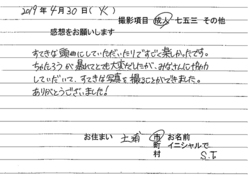 2019年 4月30日(火)
撮影項目 成人 七五三 その他
感想をお願いします
すてきな頭にしていただいたりですごく楽しかったです。
ちょたろうが暴れてとても大変でしたが、みなさんに協力
していただいて、すてきな写真を撮ることができました。
ありがとうございました!
お住まい 土浦 市 お名前
町 イニシャルで
村 S.I